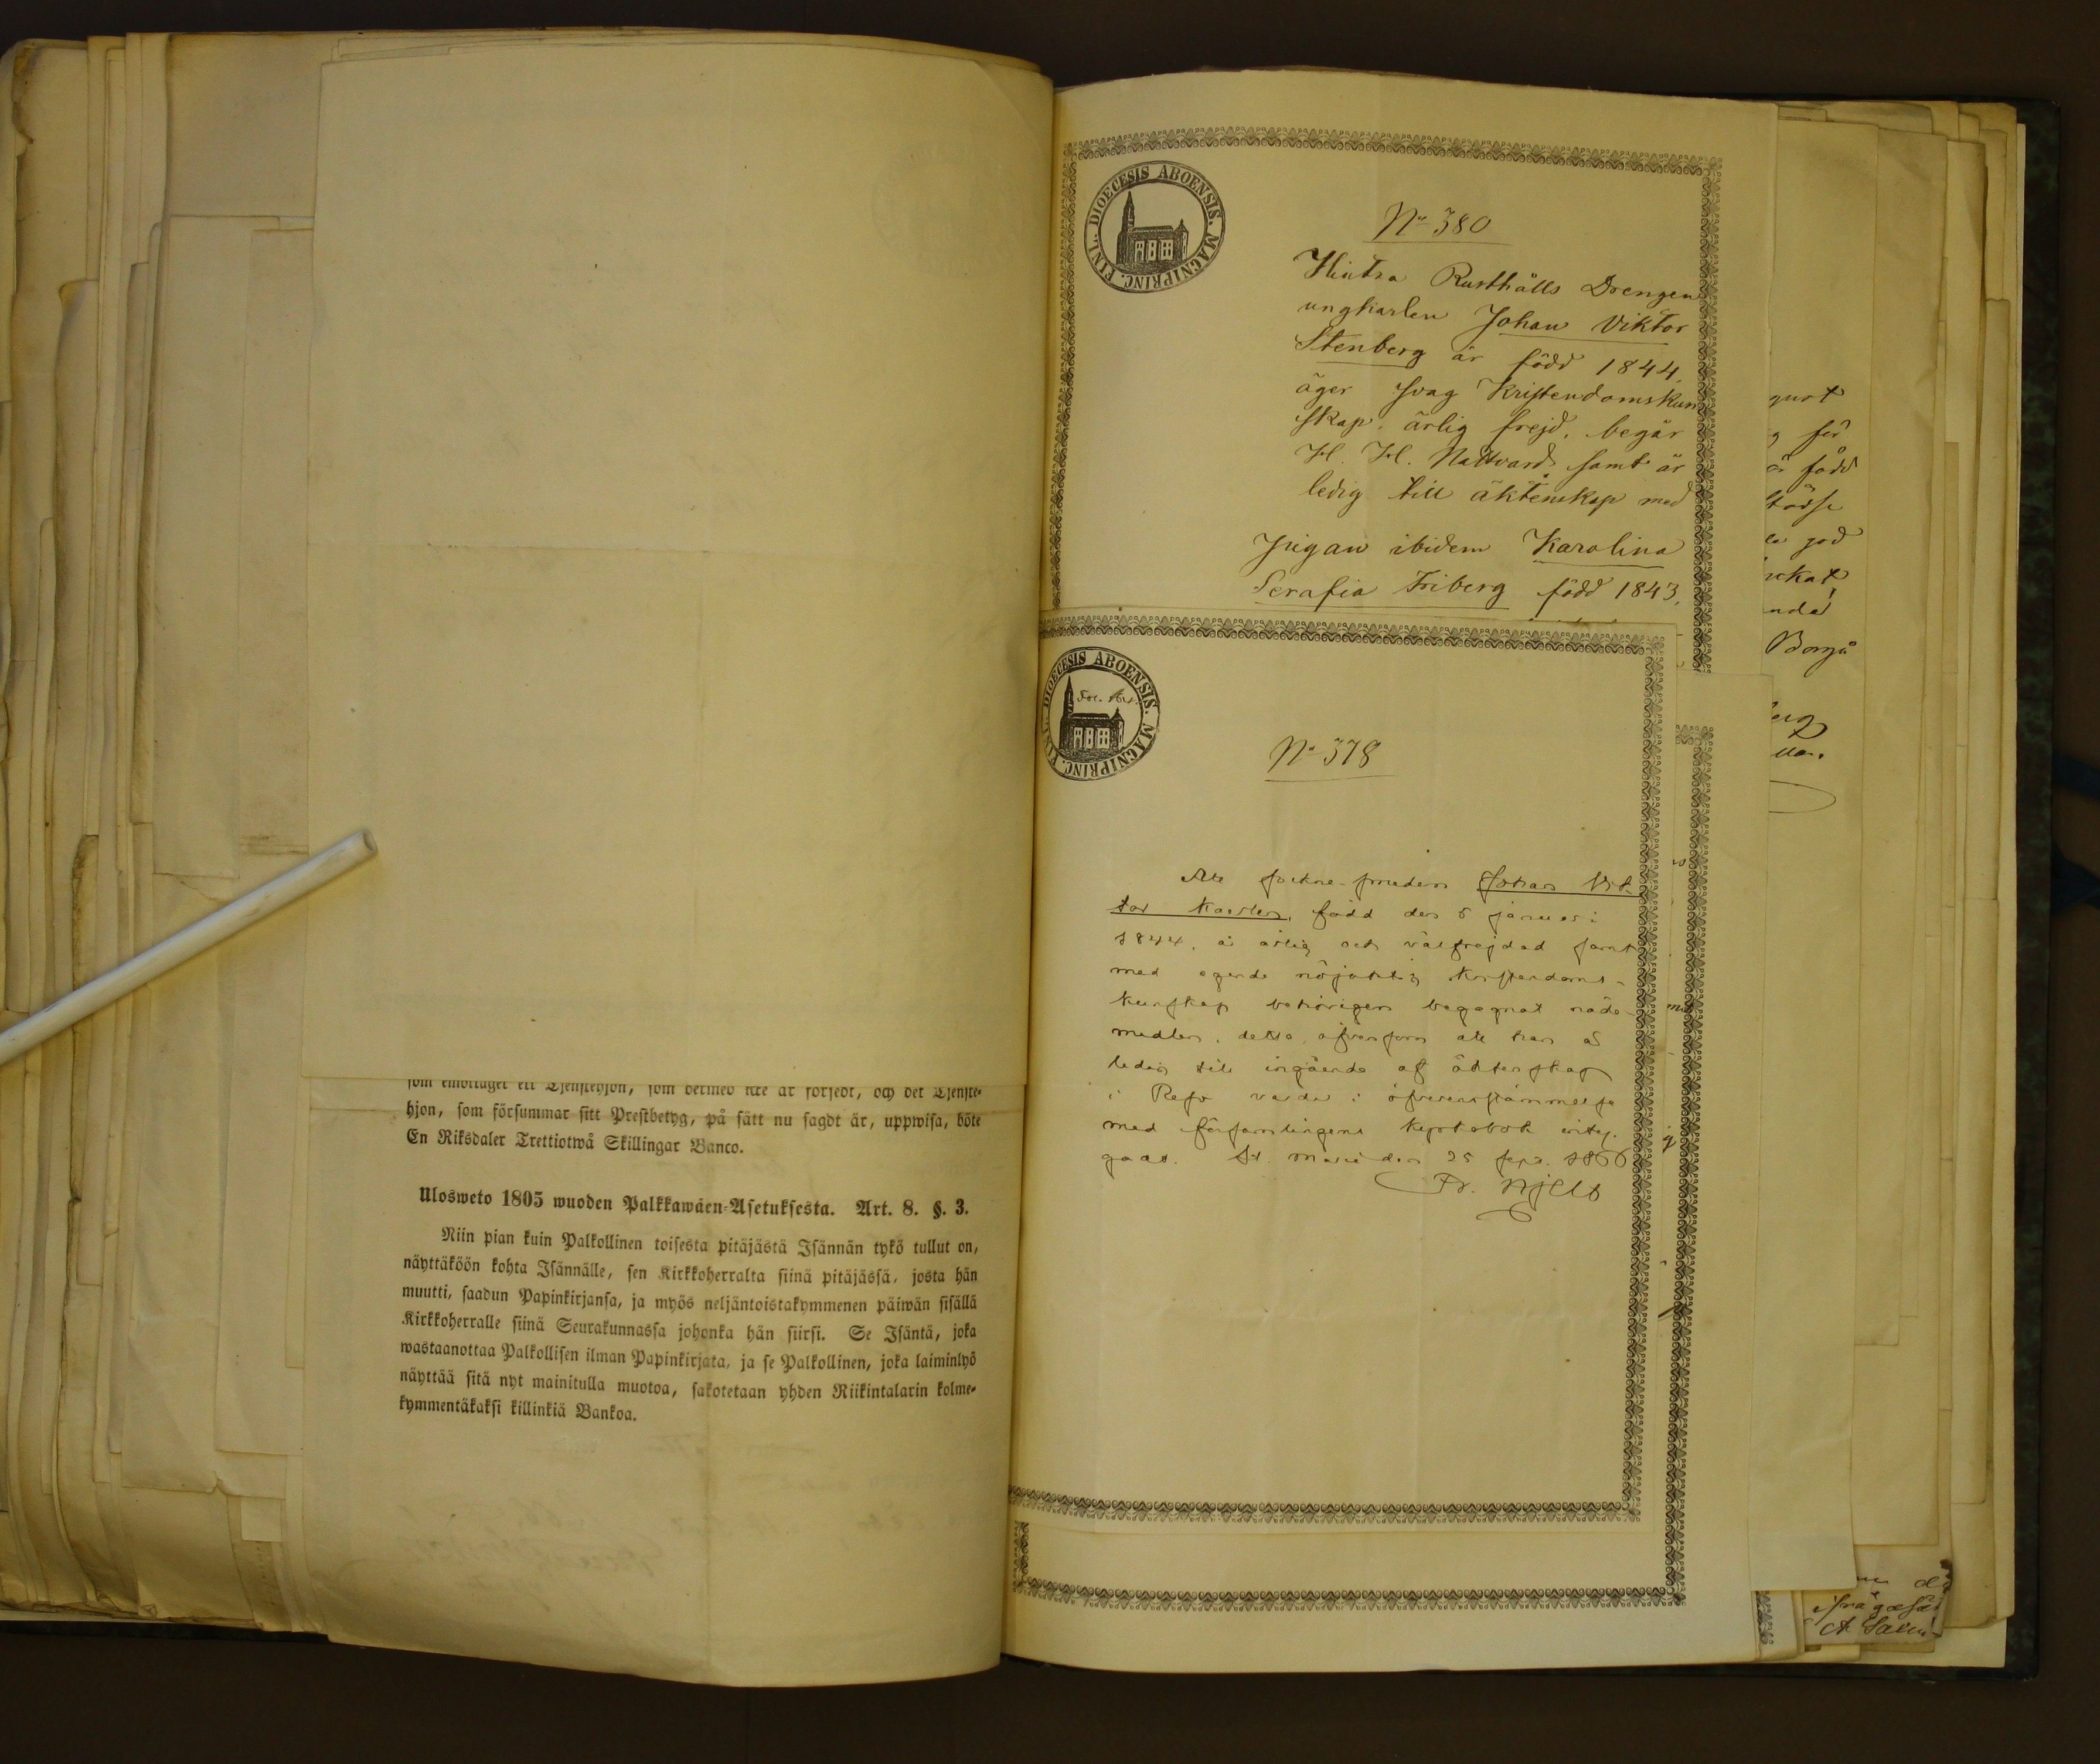 som emottaget ett Tjenstehjon, som dermed icke är försedt, och det Tjenste-
hjon, som försummar sitt Prestbetyg, på sätt nu sagdt är, uppwisa, böte
En Riksdaler Trettiotwå Skillingar Banco.
Ulosweto 1805 wuoden Palkkawäen-Asetuksesta. Art. 8. §. 3.
Niin pian kuin Palkollinen toisesta pitäjästä Isännän tykö tullut on,
näyttäköön kohta Isännälle, sen Kirkkoherralta siinä pitäjässä, josta hän
muutti, saadun Papinkirjansa, ja myös neljäntoistakymmenen päiwän sisällä
Kirkkoherralle siinä Seurakunnassa johonka hän siirsi. Se Isäntä, joka
wastaanottaa Palkollisen ilman Papinkirjata, ja se Palkollinen, joka laiminlyö
näyttää sitä nyt mainitulla muotoa, sakotetaan yhden Riikintalarin kolme-
kymmentäkaksi killinkiä Bankoa.
DIOECESIS ABOENSIS. MAGNIPRINC. FINL.
No 380
Hintsa Rusthålls Drengen
ungkarlen Johan Viktor
Stenberg är född 1844,
äger svag Kristendomskun
skap, ärlig frejd, begår
H. H. Nattvard samt är
ledig till äktenskap med
pigan ibidem Karolina
Serafia Friberg född 1843,
DIOECESIS ABOENSIS. MAGNIPRINC. FINL.
No 378
Att sockne-smeden Johan Vik-
tor född den 5 januari
1844, är ärlig och välfrejdad samt
med egande nöjaktig kristendoms-
kunskap behörigen begagnat nåde-
medlen, detta, äfvensom att han är
ledig till ingående af äktenskap
i Reso varder i öfverensstämmelse
med församlingens kyrkobok intyg-
gadt. St. Marie den 25 sept. 1866
Fr. Hjelt
gust
för
är född
god
Borgå
berg